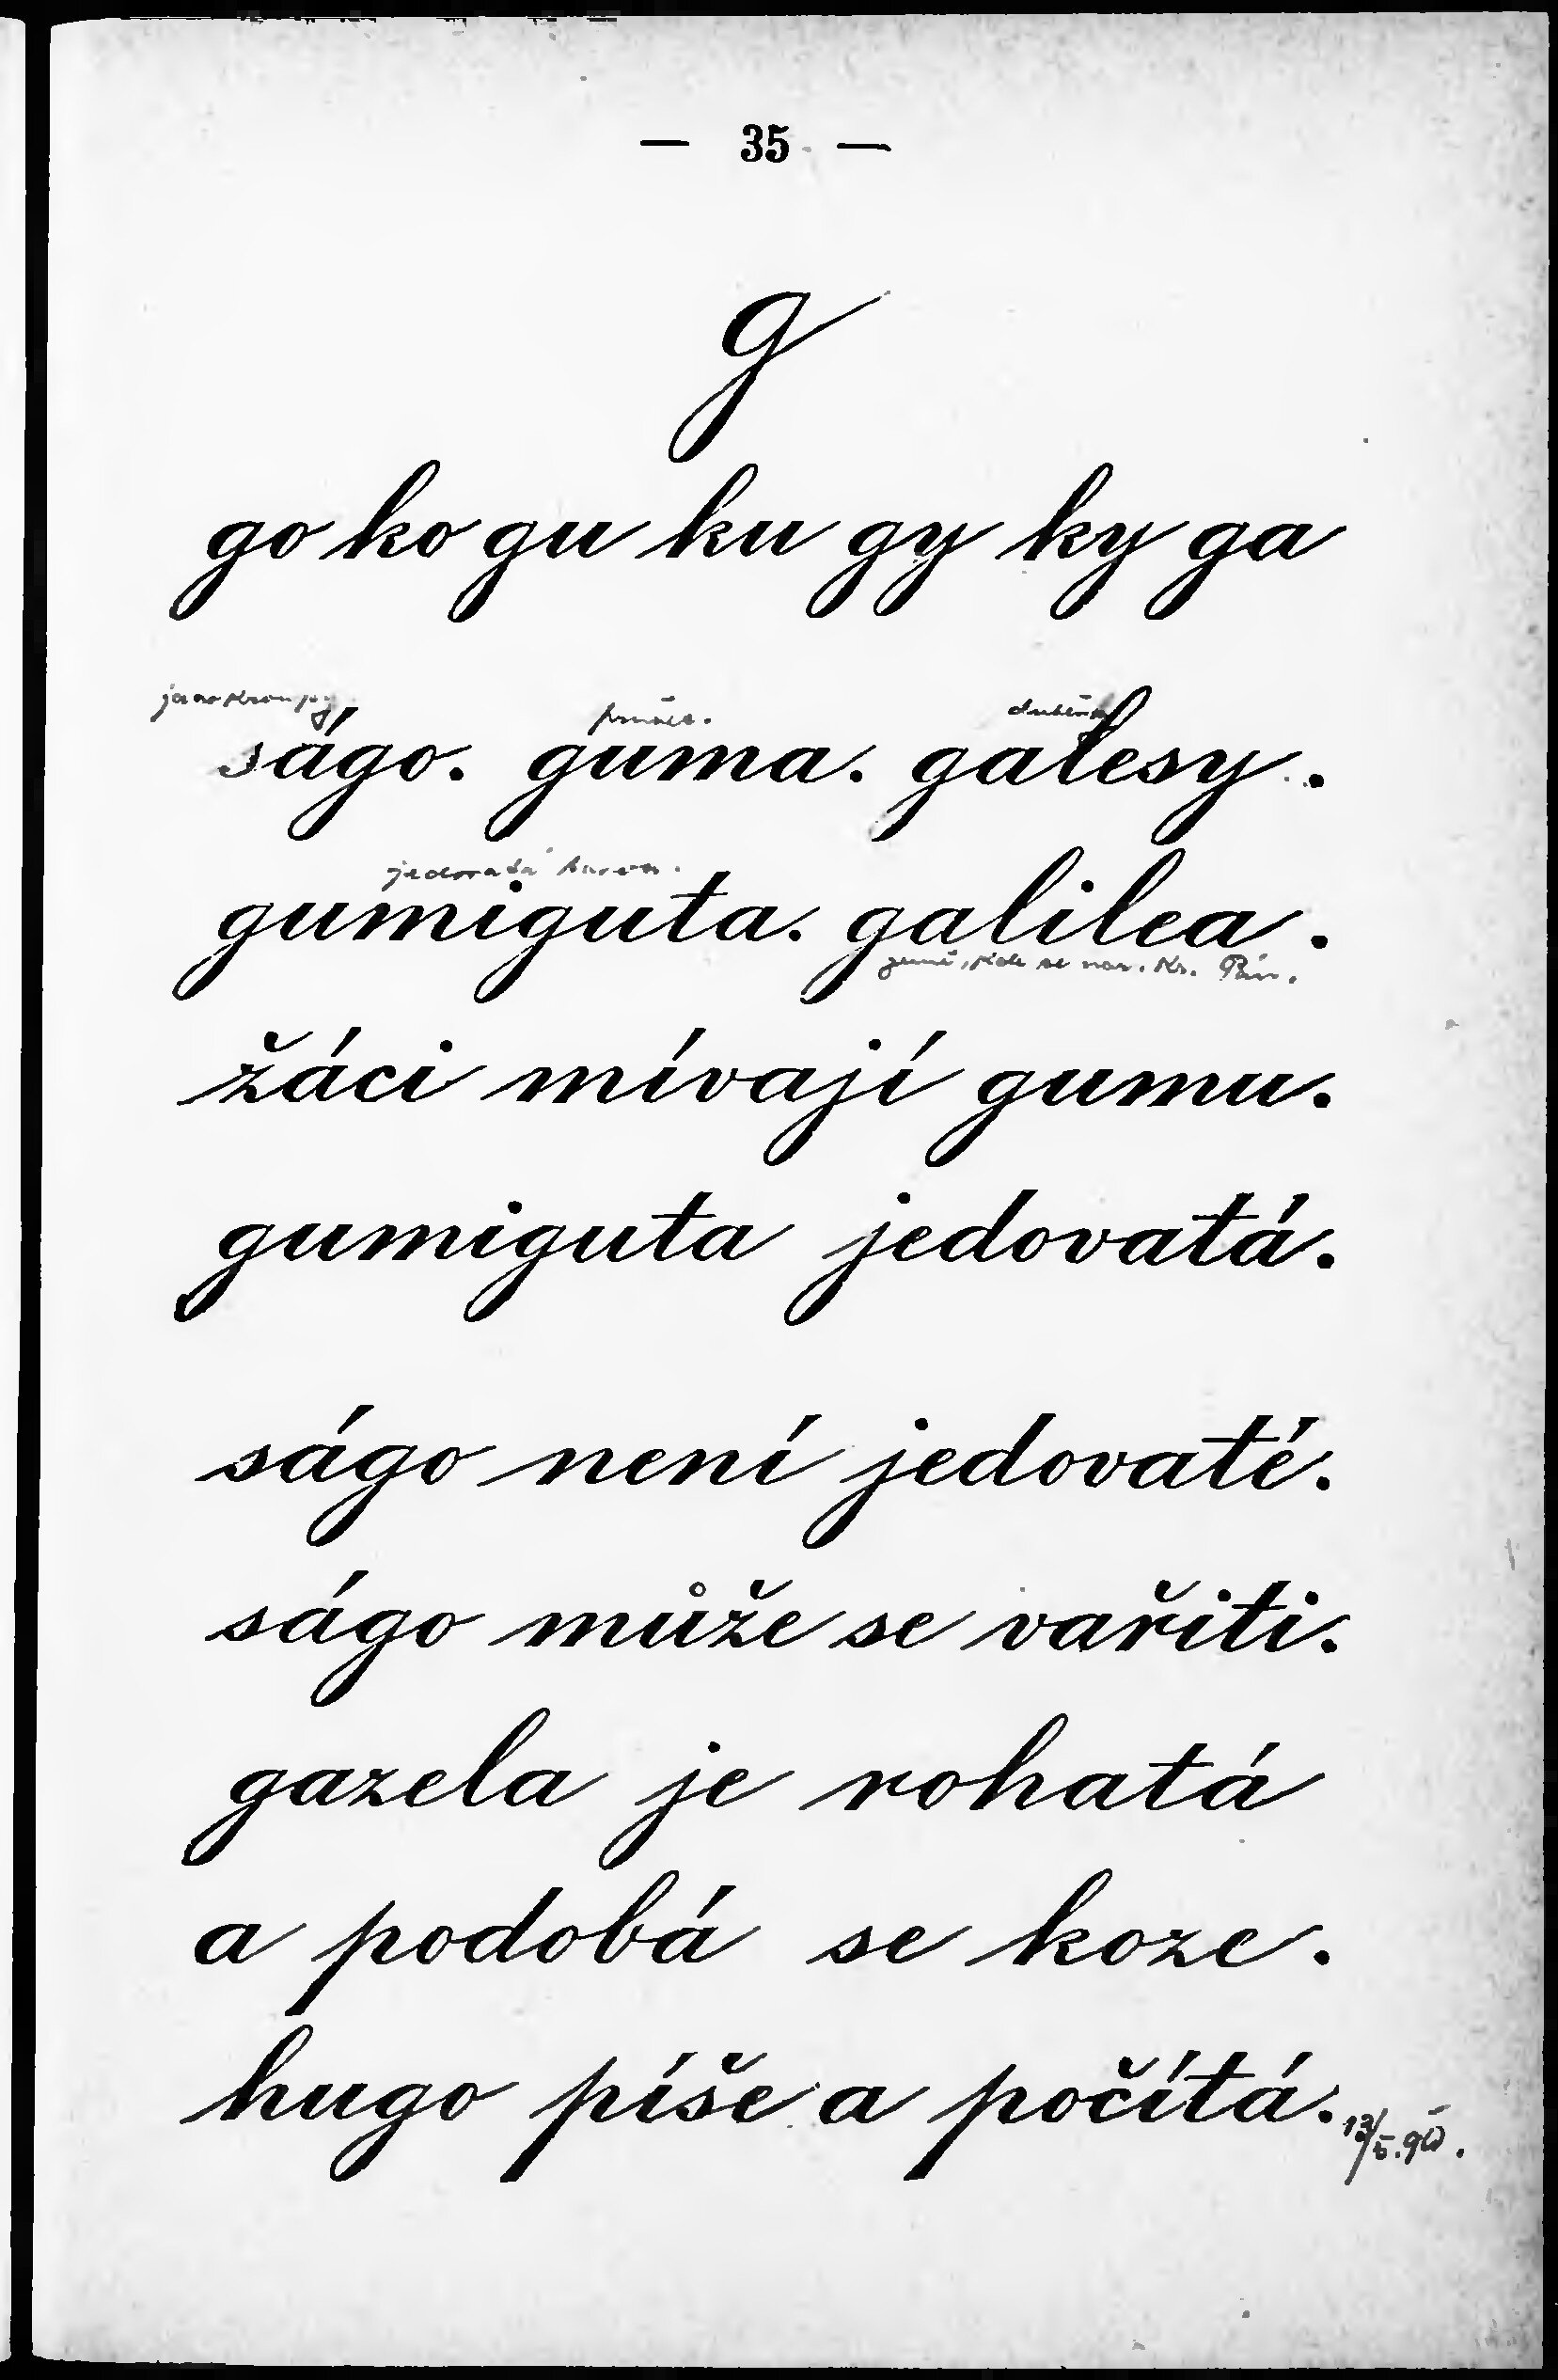 — 35 —
g
go ko gu ku gy ky ga
jako kroupy
duběnky
ságo. guma. galesy.
jedovatá barva.
gumiguta. galilea.
země, kde se nar. Kr. Pán.
žáci mívají gumu.
gumiguta jedovatá.
ságo není jedovaté.
ságo může se vařiti.
gazela je rohatá
a podobá se koze.
hugo píše a počítá.
13/5.